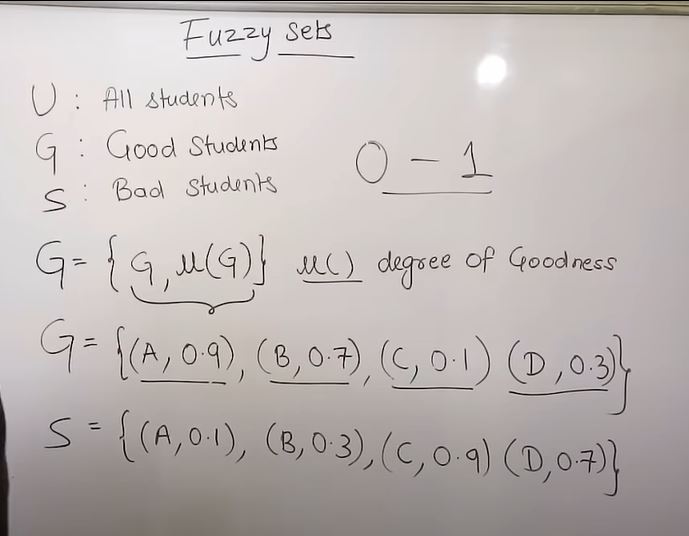 Fuzzy sets
U : All students
G : Good Students
S : Bad Students
0 - 1
G = { G, μ(G) } μ() degree of Goodness
G = {(A, 0.9), (B, 0.7), (C, 0.1) (D, 0.3)}
S = {(A, 0.1), (B, 0.3), (C, 0.9) (D, 0.7)}